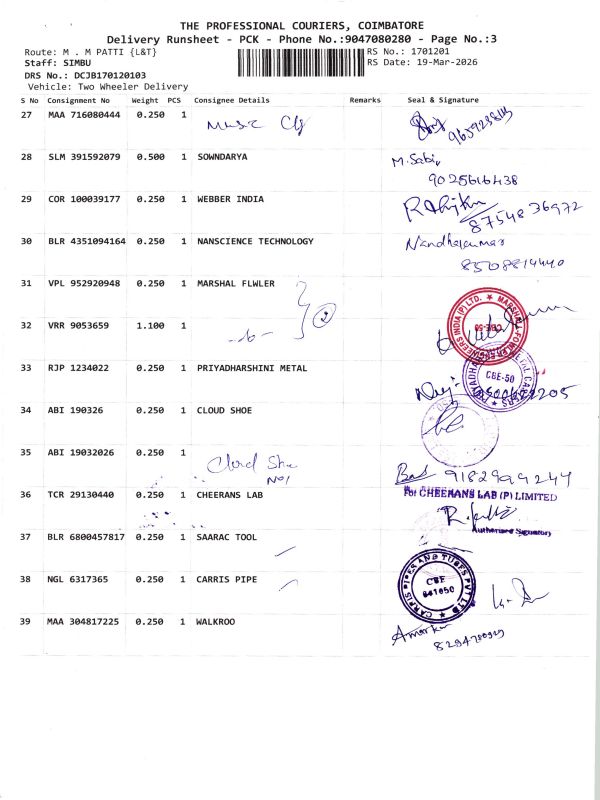 THE PROFESSIONAL COURIERS, COIMBATORE
Delivery Runsheet - PCK - Phone No.:9047080280 - Page No.:3
Route: M . M PATTI {L&T} RS No.: 1701201
Staff: SIMBU RS Date: 19-Mar-2026
DRS No.: DCJB170120103
Vehicle: Two Wheeler Delivery
S No Consignment No Weight PCS Consignee Details Remarks Seal & Signature
27 MAA 716080444 0.250 1
28 SLM 391592079 0.500 1 SOWNDARYA M. Sabi
9025616438
29 COR 100039177 0.250 1 WEBBER INDIA
87548 36972
30 BLR 4351094164 0.250 1 NANSCIENCE TECHNOLOGY Nandhakumar
8508814440
31 VPL 952920948 0.250 1 MARSHAL FLWLER
2
32 VRR 9053659 1.100 1
33 RJP 1234022 0.250 1 PRIYADHARSHINI METAL
CBE-50
34 ABI 190326 0.250 1 CLOUD SHOE
35 ABI 19032026 0.250 1 Cloud Shoe
No1
9182999244
36 TCR 29130440 0.250 1 CHEERANS LAB For CHEERANS LAB (P) LIMITED
Authorised Signatory
37 BLR 6800457817 0.250 1 SAARAC TOOL
38 NGL 6317365 0.250 1 CARRIS PIPE
CARRIS PIPES AND TUBES PVT LTD
CBE
641050
39 MAA 304817225 0.250 1 WALKROO